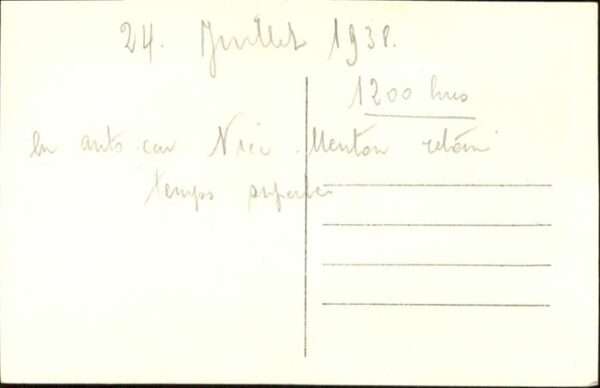 24. Juillet 1938.
1200 hres
En auto-car Nice-Menton
temps superbe